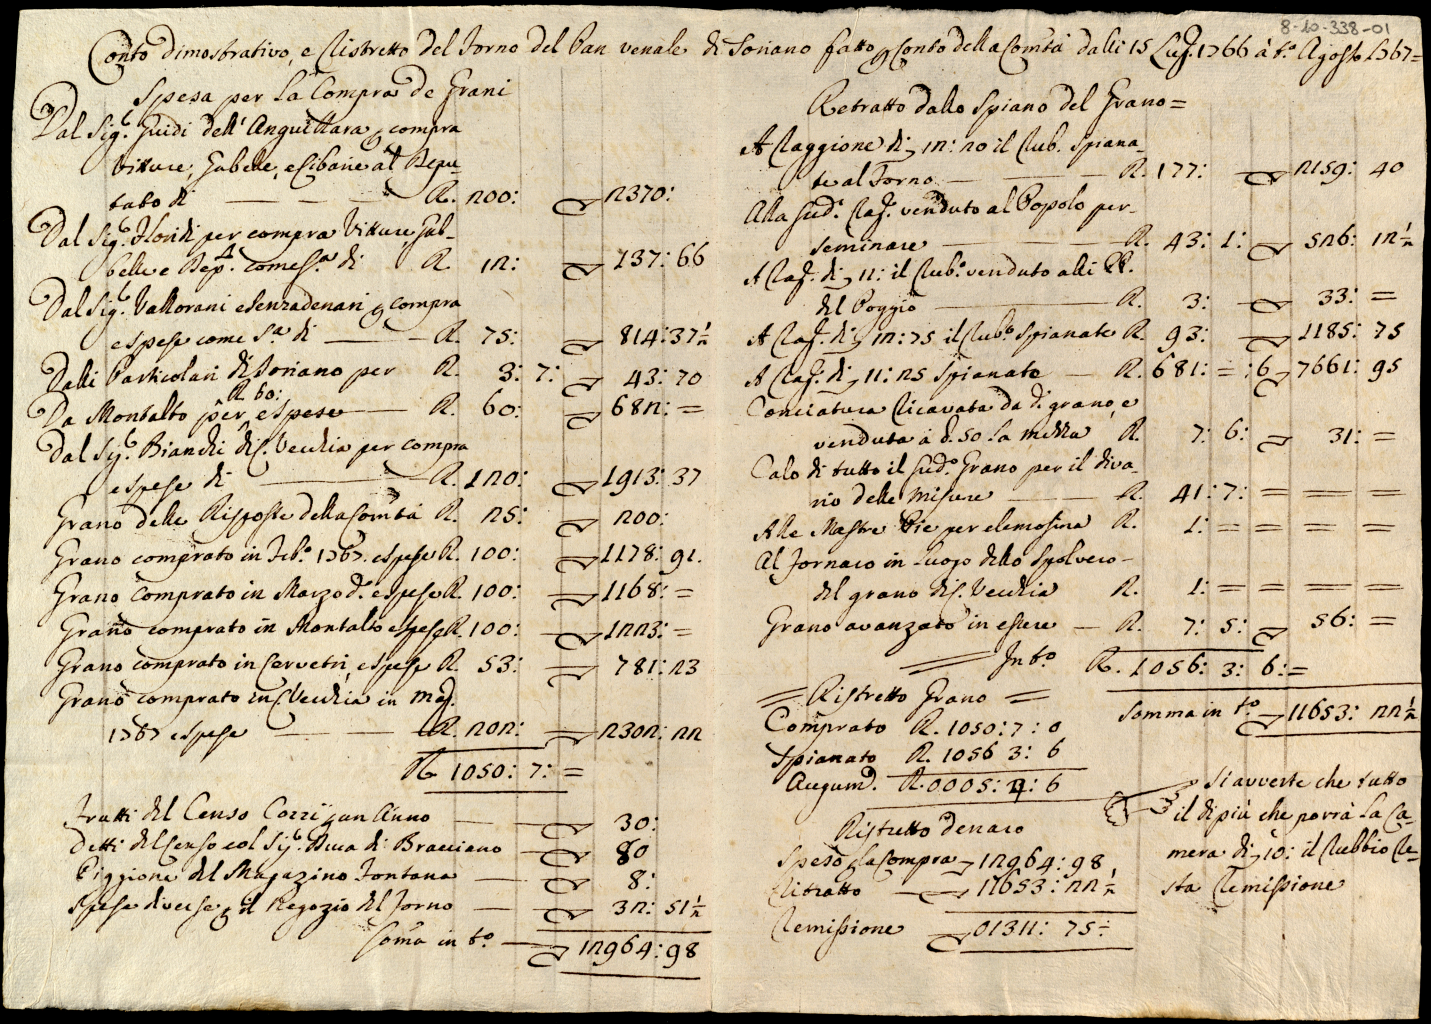 8-10-338-01
Conto dimostrativo, e Ristretto del Forno del Pan venale di Soriano fatto p Conto della Comtà dalli 15 Lug. 1766 à tº Agosto 1767=
Spesa per la Compra de Grani
Dal Sigr Guidi dell'Anguillara p compra
Vitture, Gabelle, e Cibarie al Depu-
tato di — — — R. 200: 2370:
Dal Sigr Floridi per compra Vitture Gab-
belle e Dept. come sa. di R. 12: 137: 66
Dal Sigr Valtorani e Senzadenari p compra
e spese come sa di — R. 75: 814: 37½
Dalli Particolari di Soriano per R. 3: 7: 43: 70
R. 60:
Da Montalto per, e spese — R. 60: 682: =
Dal Sigr Bianchi di C. Vecchia per compra
e spese di — R. 120: 1913: 37
Grano delle Risposte della Comtà R. 25: 200:
Grano comprato in Febº 1767. e spese R. 100: 1178: 91.
Grano comprato in Marzo dº e spese R. 100: 1168: =
Grano comprato in Montalto e spese R. 100: 1223: =
Grano comprato in Cervetri, e spese R. 53: 781: 23
Grano comprato in C. Vecchia in Mag.
1767 e spese — R. 202: 2302: 22
R. 1050: 7: =
Frutti del Censo Cozzi p un Anno — 30:
Detti del Censo col Sigr Duca di Bracciano — 80
Piggione del Magazino Fontana — 8:
Spese diverse p il Negozio del Forno — 32: 51½
Soma in tº — 12964: 98
Retratto dallo Spiano del Grano=
A Raggione di 12: 20 il Rub. Spiana-
te al Forno — R. 177: 2159: 40
Alla sudª Rag. venduto al Popolo per-
seminare — R. 43: 1: 526: 12½
A Rag. di 11: il Rubº venduto alli PP.
del Poggio — R. 3: 33: =
A Rag. di 12: 75 il Rubº Spianate R. 93: 1185: 75
A Rag. di 11: 25 Spianate — R. 681: = : 6 7661: 95
Conciatura Ricavata da dº grano, e
venduta à b. 50 la mezza R. 7: 6: 31: =
Calo di tutto il sudº Grano per il diva-
rio delle Misure — R. 41: 7: = = = =
Alle Mastre Pie per elemosina R. 1: = = = =
Al Fornaro in luogo dello Spolvero-
del grano di C. Vecchia R. 1: = = = =
Grano avanzato in essere — R. 7: 5: 56: =
In tº R. 1056: 3: 6: =
Somma in tº 11653: 22½
= Ristretto Grano =
Comprato R. 1050: 7: 0
Spianato R. 1056 3: 6
Augumº. R. 0005: 4: 6
Ristretto Denaro
Speso p la Compra 12964: 98
Ritratto 11653: 22½
Remissione 01311: 75:
Si avverte che tutto
il di più che porrà la Ca-
mera di 10: il Rubbio Re-
sta Remissione